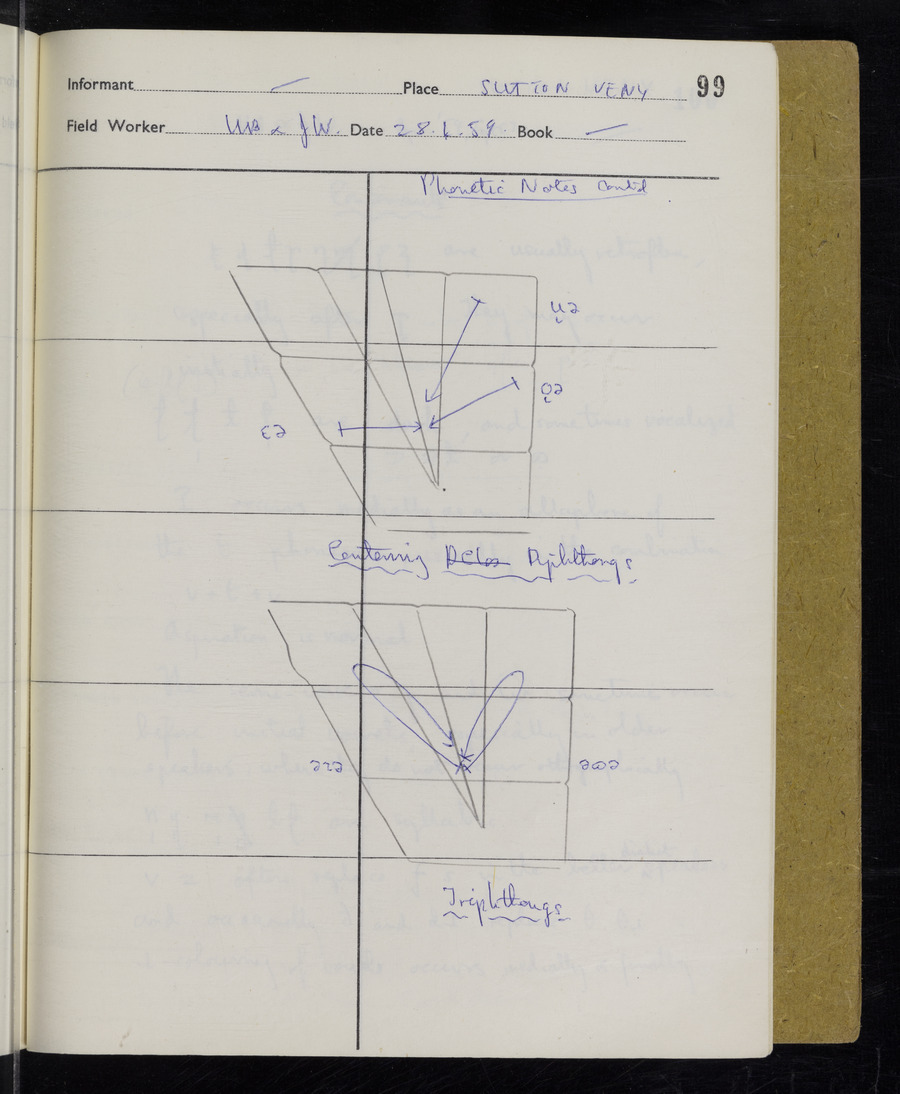 Informant — Place SUTTON VENY 99
Field Worker WB & JW. Date 28.1.59 Book —
Phonetic Notes Contd
Centering Diphthongs
əɪə əʊə
Triphthongs